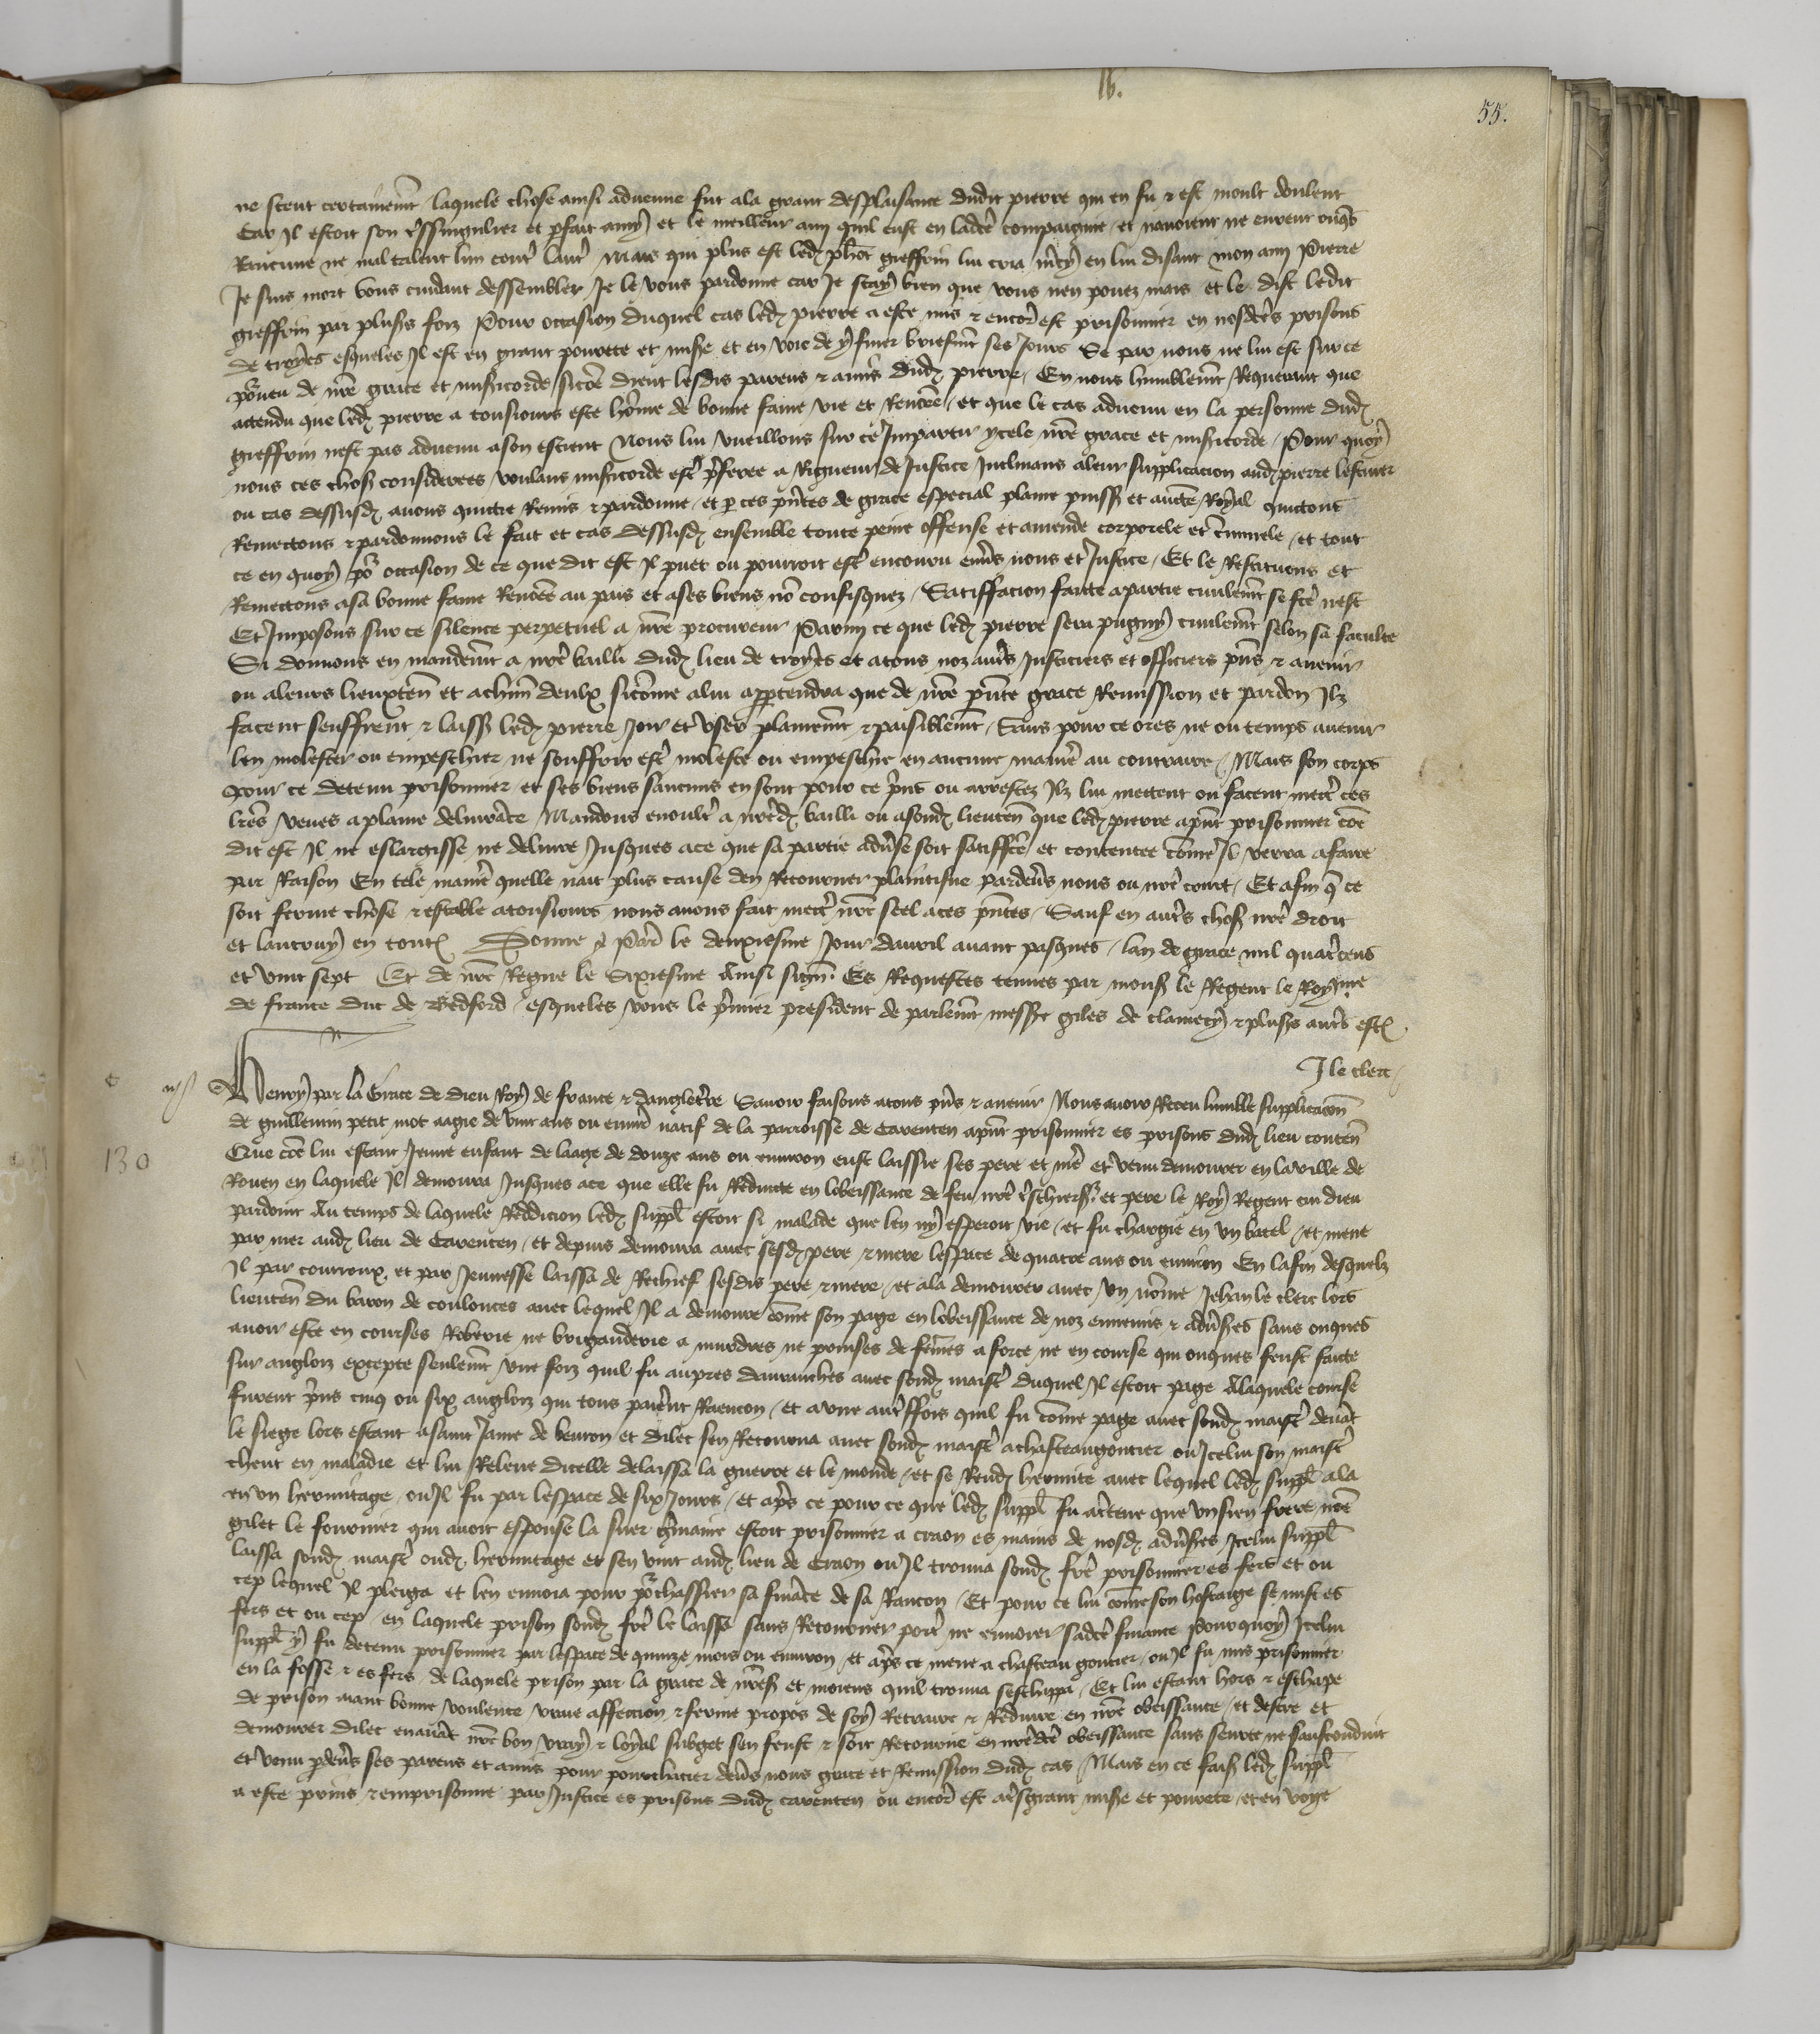 lb.
55.
ne sceut certainemt laquele chose ainsi advenue fut ala grant desplaisance dudit pierre qui en fu & est moult doulent
Car Il estoit son tssingulier et pfait amy et le meilleur amy quil eust en ladcte compaignie et navoient ne eurent onqs
Rancune ne mal talent lun contre lautre Mais qui plus est led phot gieffrin lui cria mcy en lui disant mon amy Pierre
Je suis mort vous cuidant dessembler Je le vous pardonne car Je scay bien que vous nen povez mais et le dist ledit
gieffrin par plusrs foiz Pour occasion duquel cas led pierre a este mis & encore est prisonnier en nosdctes prisons
de troyes esqueles Il est en grant povrete et misere et en voie de y finer briefmt ses Jours Se par nous ne lui est sur ce
pourveu de nre grace et misericorde sicoe dient lesdis parens & amis dud pierre En nous humblemt Requerant que
attendu que led pierre a tousiours este home de bonne fame vie et Renomee et que le cas advenu en la personne dud
gieffrin nest pas advenu a son escient Nous lui vueillons sur ce Impartir ycele nre grace et misericorde Pour quoy
nous ces choses considerees voulans misericorde estre preferee a Rigueur de Justice Inclinans a leur supplicacion aud pierre lescuier
ou cas dessusd avons quictie Remis & pardonne et p ces pntes de grace especial plaine puissance et auctte Royal quictons
Remettons & pardonnons le fait et cas dessusd ensemble toute peine offense et amende corporele et criminele et tout
ce en quoy pour occasion de ce que dit est Il puet ou pourroit estre encouru envers nous et Justice Et le Restituons et
Remettons a sa bonne fame Renomee au pais et a ses biens no confisquez Satiffacion faicte a partie civilemt se fcte nest
Et Imposons sur ce silence perpetuel a nre procureur Parmy ce que led pierre sera pugny civilemt selon sa faculte
Si donnons en mandemt a nre bailli dud lieu de troyes et atous noz autres Justiciers et officiers pns & avenir
ou aleurs lieuxten et achun deulx sicome alui appartendra que de nre pnte grace Remission et pardon Ilz
facent seuffrent & laissent led pierre Joir et user plainemt & paisiblemt Sans pour ce ores ne ou temps avenir
len molester ou empeschier ne souffrir estre moleste ou empeschie en aucune maniere au contraire Mais son corps
pour ce detenu prisonnier et ses biens saucuns en sont pour ce pris ou arrestez Ilz lui mettent ou facent mettre ces
lres veues a plaine delivrance Mandons enoultre a nred bailli ou asond lieuten que led pierre a pnt prisonnier coe
dit est Il ne eslargisse ne delivre Jusques ace que sa partie adverse soit satiffcte et contentee come Il verra afaire
par Raison En tele maniere quelle nait plus cause den Retourner plaintifve pardevers nous ou nre court Et afin q ce
soit ferme chose & estable atousiours nous avons fait mettre nre seel aces pntes Sauf en autres choses nre droit
et lautruy en toutes Donne a Paris le deuxiesme Jour davril avant pasques lan de grace mil quatre cens
et vint sept Et de nre Regne le Sixiesme Ainsi sign Es Requestes tenues par mons le Regent le Royaume
de france duc de Bedford esqueles vous le premier president de parlemt messire giles de clamecy & plusrs autres estes
J le clerc
130
Henry par la Grace de dieu Roy de france & dangleterre Savoir faisons atous pns & avenir Nous avoir Receu lumble supplicacion
de guillemin petit mot aagie de vint ans ou environ natif de la parroisse de Carenten apnt prisonnier es prisons dud lieu conten
Que coe lui estant Jeune enfant de laage de douze ans ou environ eust laissie ses pere et mere et venu demourer en la ville de
Rouen en laquele Il demoura Jusques ace que elle fu Reduicte en lobeissance de feu nre treschiers et pere le Roy Regent cui dieu
pardoint Au temps de laquele Reddicion led suppl estoit si malade que len ny esperoit vie et fu chargie en un batel et mene
par mer aud lieu de Carenten et depuis demoura avec sesd pere & mere lespace de quatre ans ou environ En la fin desquelz
Il par courroux et par Jeunesse laissa de Rechief sesdis pere & mere et ala demourer avec un nome Jehan le clerc lors
lieuten du baron de coulonces avec lequel Il a demoure come son page en lobeissance de noz ennemis & advses sans onques
avoir este en courses Roberie ne briganderie a murdres ne prinses de femes a force ne en course qui onques feust faicte
sur anglois excepte seulemt une foiz quil fu aupres davranches avec sond maistre duquel Il estoit page Alaquele course
furent prins cinq ou six anglois qui tous paierent Raencon et a une autreffois quil fu come page avec sond maistre devant
le siege lors estant a saint Jame de beuvron et dilec sen Retourna avec sond maistre a chasteaugontier ou Icelui son maistre
cheut en maladie et lui Releve dicelle delaissa la guerre et le monde et se Rendi hermite avec lequel led suppl ala
en un hermitage ou Il fu par lespace de six Jours et apres ce pour ce que led suppl fu acertene que un sien frere nome
gilet le fournier qui avoit espouse la suer germaine estoit prisonnier a craon es mains de nosd advses Icelui suppl
laissa sond maistre oud hermitage et sen vint aud lieu de Craon ou Il trouva sond frere prisonnier es fers et ou
cep lequel Il pleiga et len envoia pour pourchassier sa finance de sa Rancon Et pour ce lui come son hostaige se mist es
fers et ou cep en laquele prison sond frere le laissa sans Retourner porter ne envoier sadcte finance Pourquoy Icelui
suppl y fu detenu prisonnier par lespace de quinze mois ou environ et apres ce mene a chasteau gontier ou Il fu mis prisonnier
en la fosse & es fers de laquele prison par la grace de nres et moiens quil trouva seschappa Et lui estant hors & eschape
de prison aiant bonne voulente vraie affection & ferme propos de soy Retraire & Reduire en nre obeissance et destre et
demourer dilec enavant nre bon vray & loyal subget sen feust & soit Retourne en nredcte obeissance sans seurte ne saufconduit
et venu pdevers ses parens et amis pour pourchacier devers nous grace et Remission dud cas Mais en ce faisant led suppl
a este prins & emprisonne par Justice es prisons dud carenten ou encore est a tresgrant misere et povrete et en voye